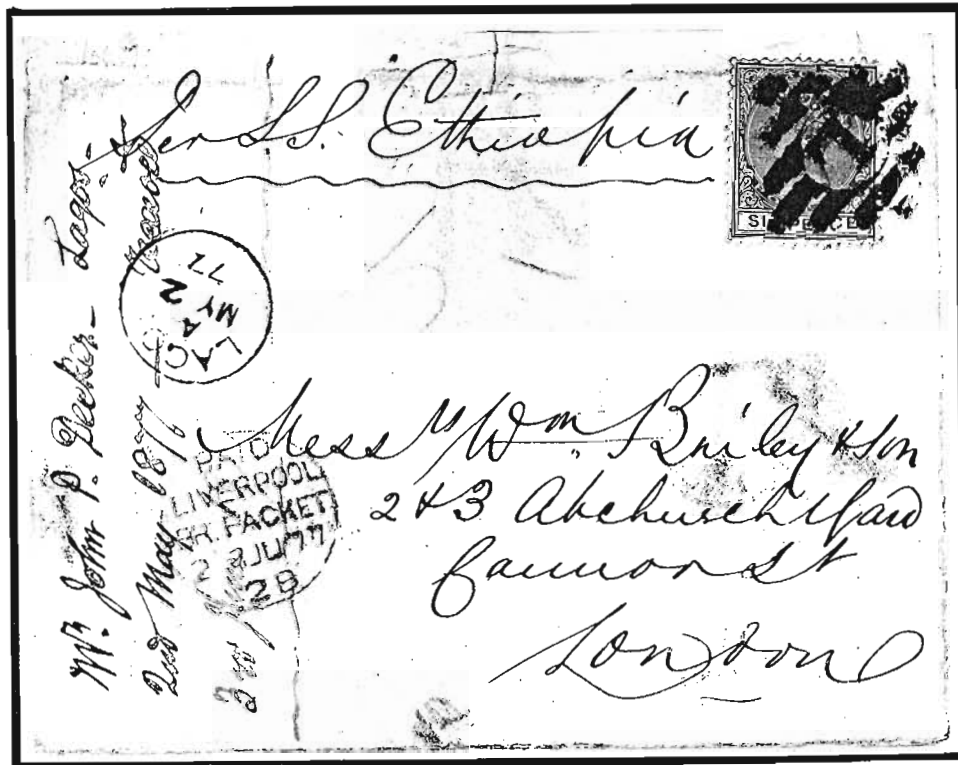 Per S.S. Ethiopia
SIXPENCE
LAGOS
A
MY 2
77
Mess rs Wm. Bailey & Son
2 & 3 Abchurch Yard
Cannon St
London
PAID
LIVERPOOL
BR. PACKET
2 JU 77
2B
John P. Decker _ Lagos _
2nd May 1877